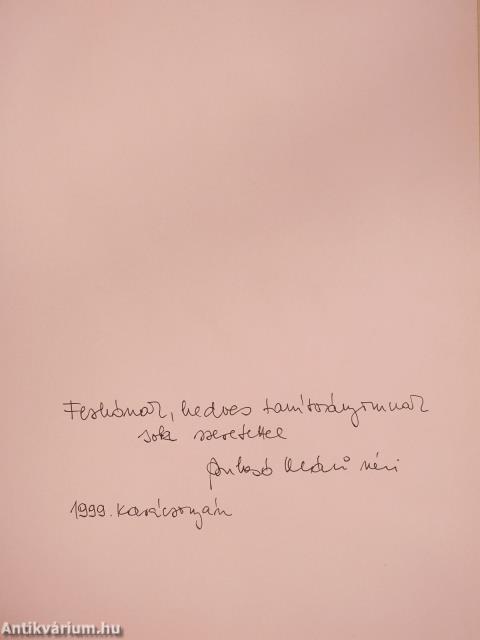 Feskónak, kedves tanítványomnak
sok szeretettel
néni
1999. karácsonyán
Antikvárium.hu